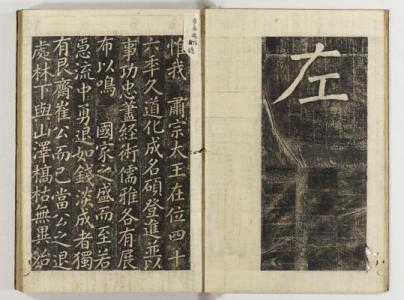 左
惟我 肅宗大王在位四十
六年久道化成名碩登進並以
事功忠藎經術儒雅各有展
布以鳴 國家之盛而至若
急流中勇退如錢淡成者獨
有艮齋崔公而已當公之退
處林下與山澤槁枯無異治